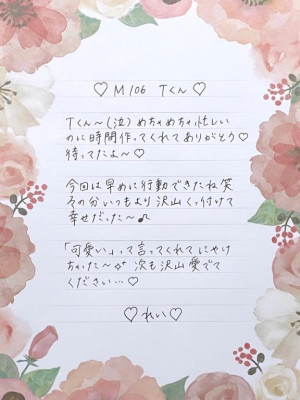 ♡ M106 Tくん ♡
Tくん～(泣)めちゃめちゃ忙しい
のに時間作ってくれてありがとう♡
待ってたよ～♡
今回は早めに行動できたね笑
その分いつもより沢山くっ付けて
幸せだった～♪
「可愛い」って言ってくれてにやけ
ちゃった～ 次も沢山愛でて
ください…♡
♡ れい ♡